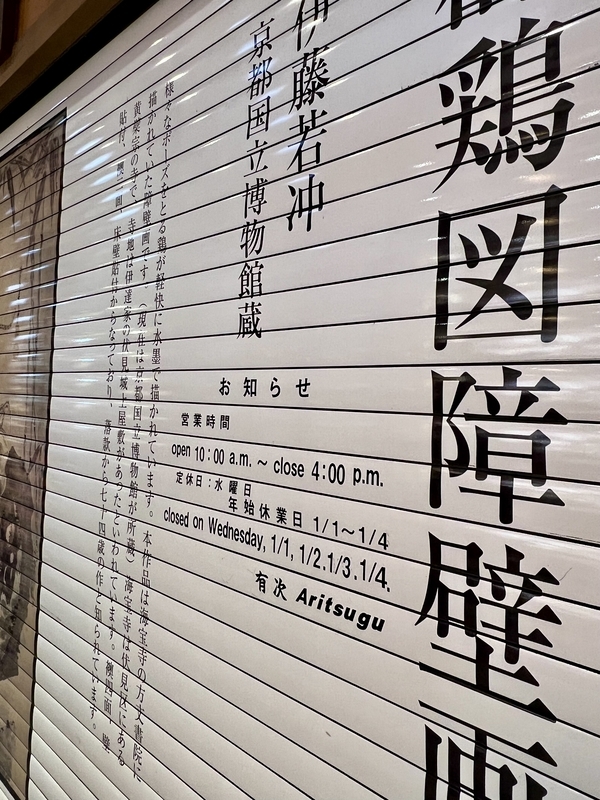 鶏図障壁画
伊藤若冲
京都国立博物館蔵
様々なポーズをとる鶏が軽快に水墨で描かれています。本作品は海宝寺の方丈書院に
描かれていた障壁画です。(現在は京都国立博物館が所蔵)海宝寺は伏見区にある
黄檗宗の寺で、寺地は伊達家の伏見城上屋敷があったといわれています。襖四面、壁
貼付、襖二面、床壁貼付からなっており、落款から七十四歳の作と知られています。
お知らせ
営業時間
open 10:00 a.m. ~ close 4:00 p.m.
定休日:水曜日
年始休業日 1/1~1/4
closed on Wednesday, 1/1, 1/2.1/3.1/4.
有次 Aritsugu